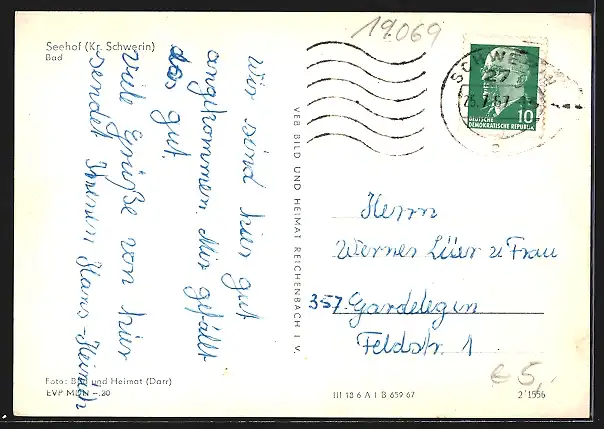 Seehof (Kr. Schwerin)
Bad
19069
SCHWERIN
27
25.7.67
10
DEUTSCHE
DEMOKRATISCHE REPUBLIK
Wir sind hier gut
angekommen. Mir gefällt
das gut.
Viele Grüße von hier
sendet Ihnen Hans-Heinrich
VEB BILD UND HEIMAT REICHENBACH I. V.
Herrn
Werner Lüer u Frau
357 Gardelegen
Feldstr. 1
Foto: Bild und Heimat (Darr)
EVP MDN -.20
III 18 6 A 1 B 659 67
€ 5,-
2/1556